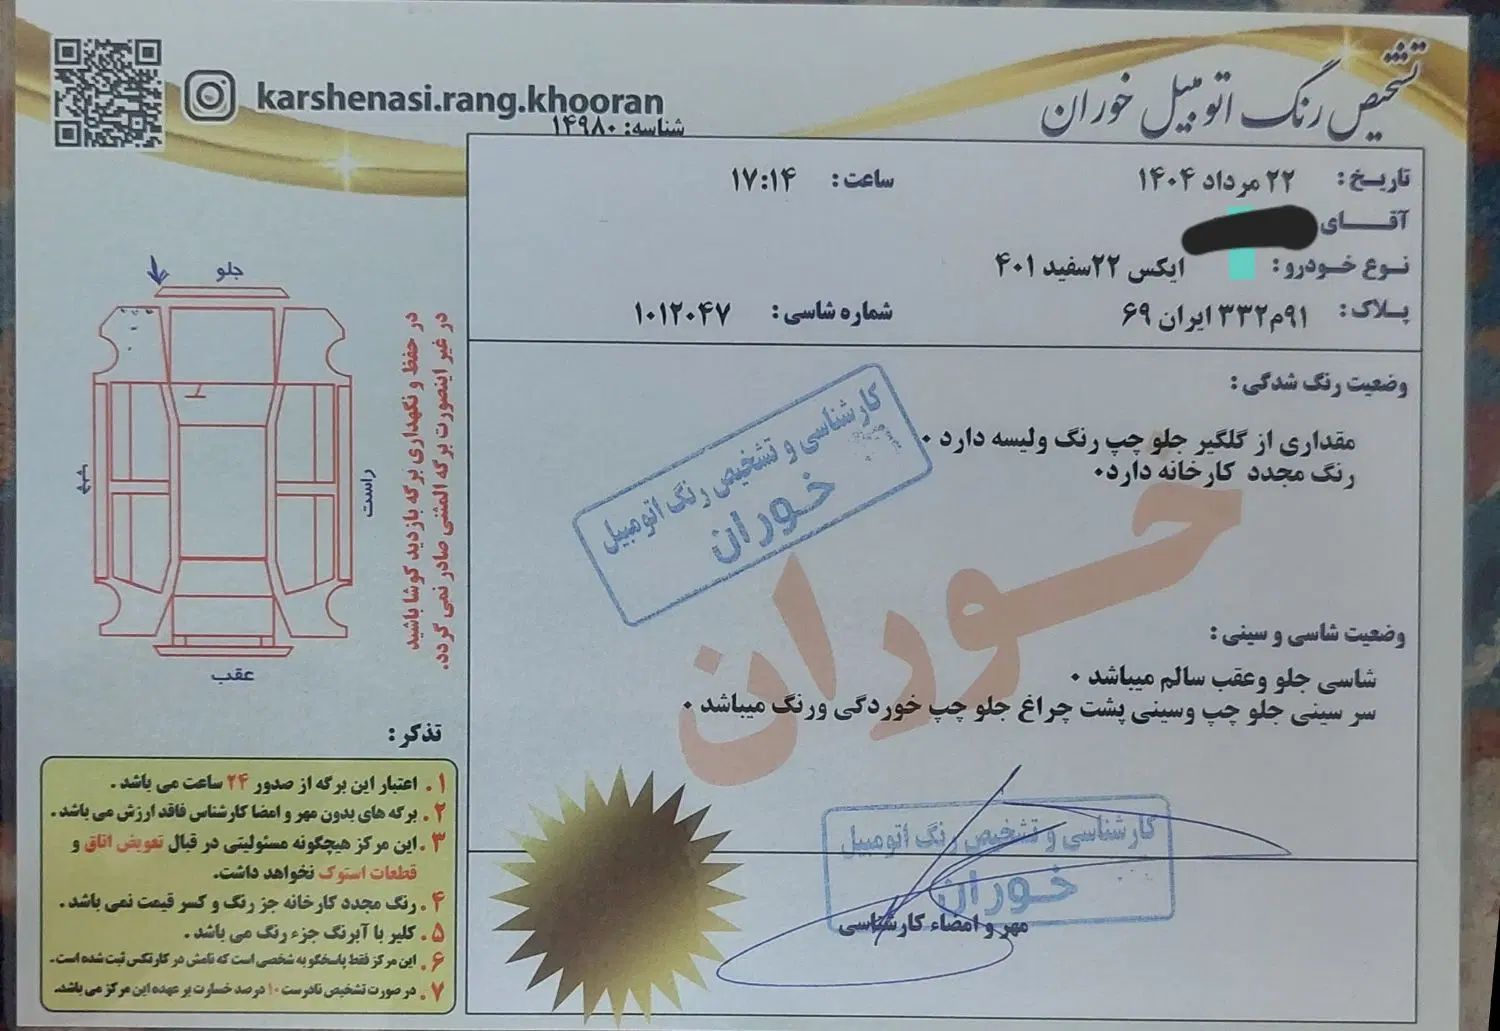 تشخیص رنگ اتومبیل خوران
karshenasi.rang.khooran
شناسه: ۱۴۹۸۰
تاریخ: ۲۲ مرداد ۱۴۰۴ ساعت: ۱۷:۱۴
آقای
نوع خودرو: ایکس ۲۲سفید ۴۰۱
پلاک: ۹۱م۳۳۲ ایران ۶۹ شماره شاسی: ۱۰۱۲۰۴۷
وضعیت رنگ شدگی:
مقداری از گلگیر جلو چپ رنگ ولیسه دارد ۰
رنگ مجدد کارخانه دارد۰
کارشناسی و تشخیص رنگ اتومبیل
خوران
خوران
وضعیت شاسی و سینی:
شاسی جلو وعقب سالم میباشد ۰
سر سینی جلو چپ وسینی پشت چراغ جلو چپ خوردگی ورنگ میباشد ۰
کارشناسی و تشخیص رنگ اتومبیل
خوران
مهر و امضاء کارشناسی
جلو
چپ
راست
عقب
در حفظ و نگهداری برگه بازدید کوشا باشید
در غیر اینصورت برگه المثنی صادر نمی گردد.
تذکر:
۱. اعتبار این برگه از صدور ۲۴ ساعت می باشد.
۲. برگه های بدون مهر و امضا کارشناس فاقد ارزش می باشد.
۳. این مرکز هیچگونه مسئولیتی در قبال تعویض اتاق و
قطعات استوک نخواهد داشت.
۴. رنگ مجدد کارخانه جز رنگ و کسر قیمت نمی باشد.
۵. کلیر با آبرنگ جزء رنگ می باشد.
۶. این مرکز فقط پاسخگو به شخصی است که نامش در کارتکس ثبت شده است.
۷. در صورت تشخیص نادرست ۱۰ درصد خسارت بر عهده این مرکز می باشد.